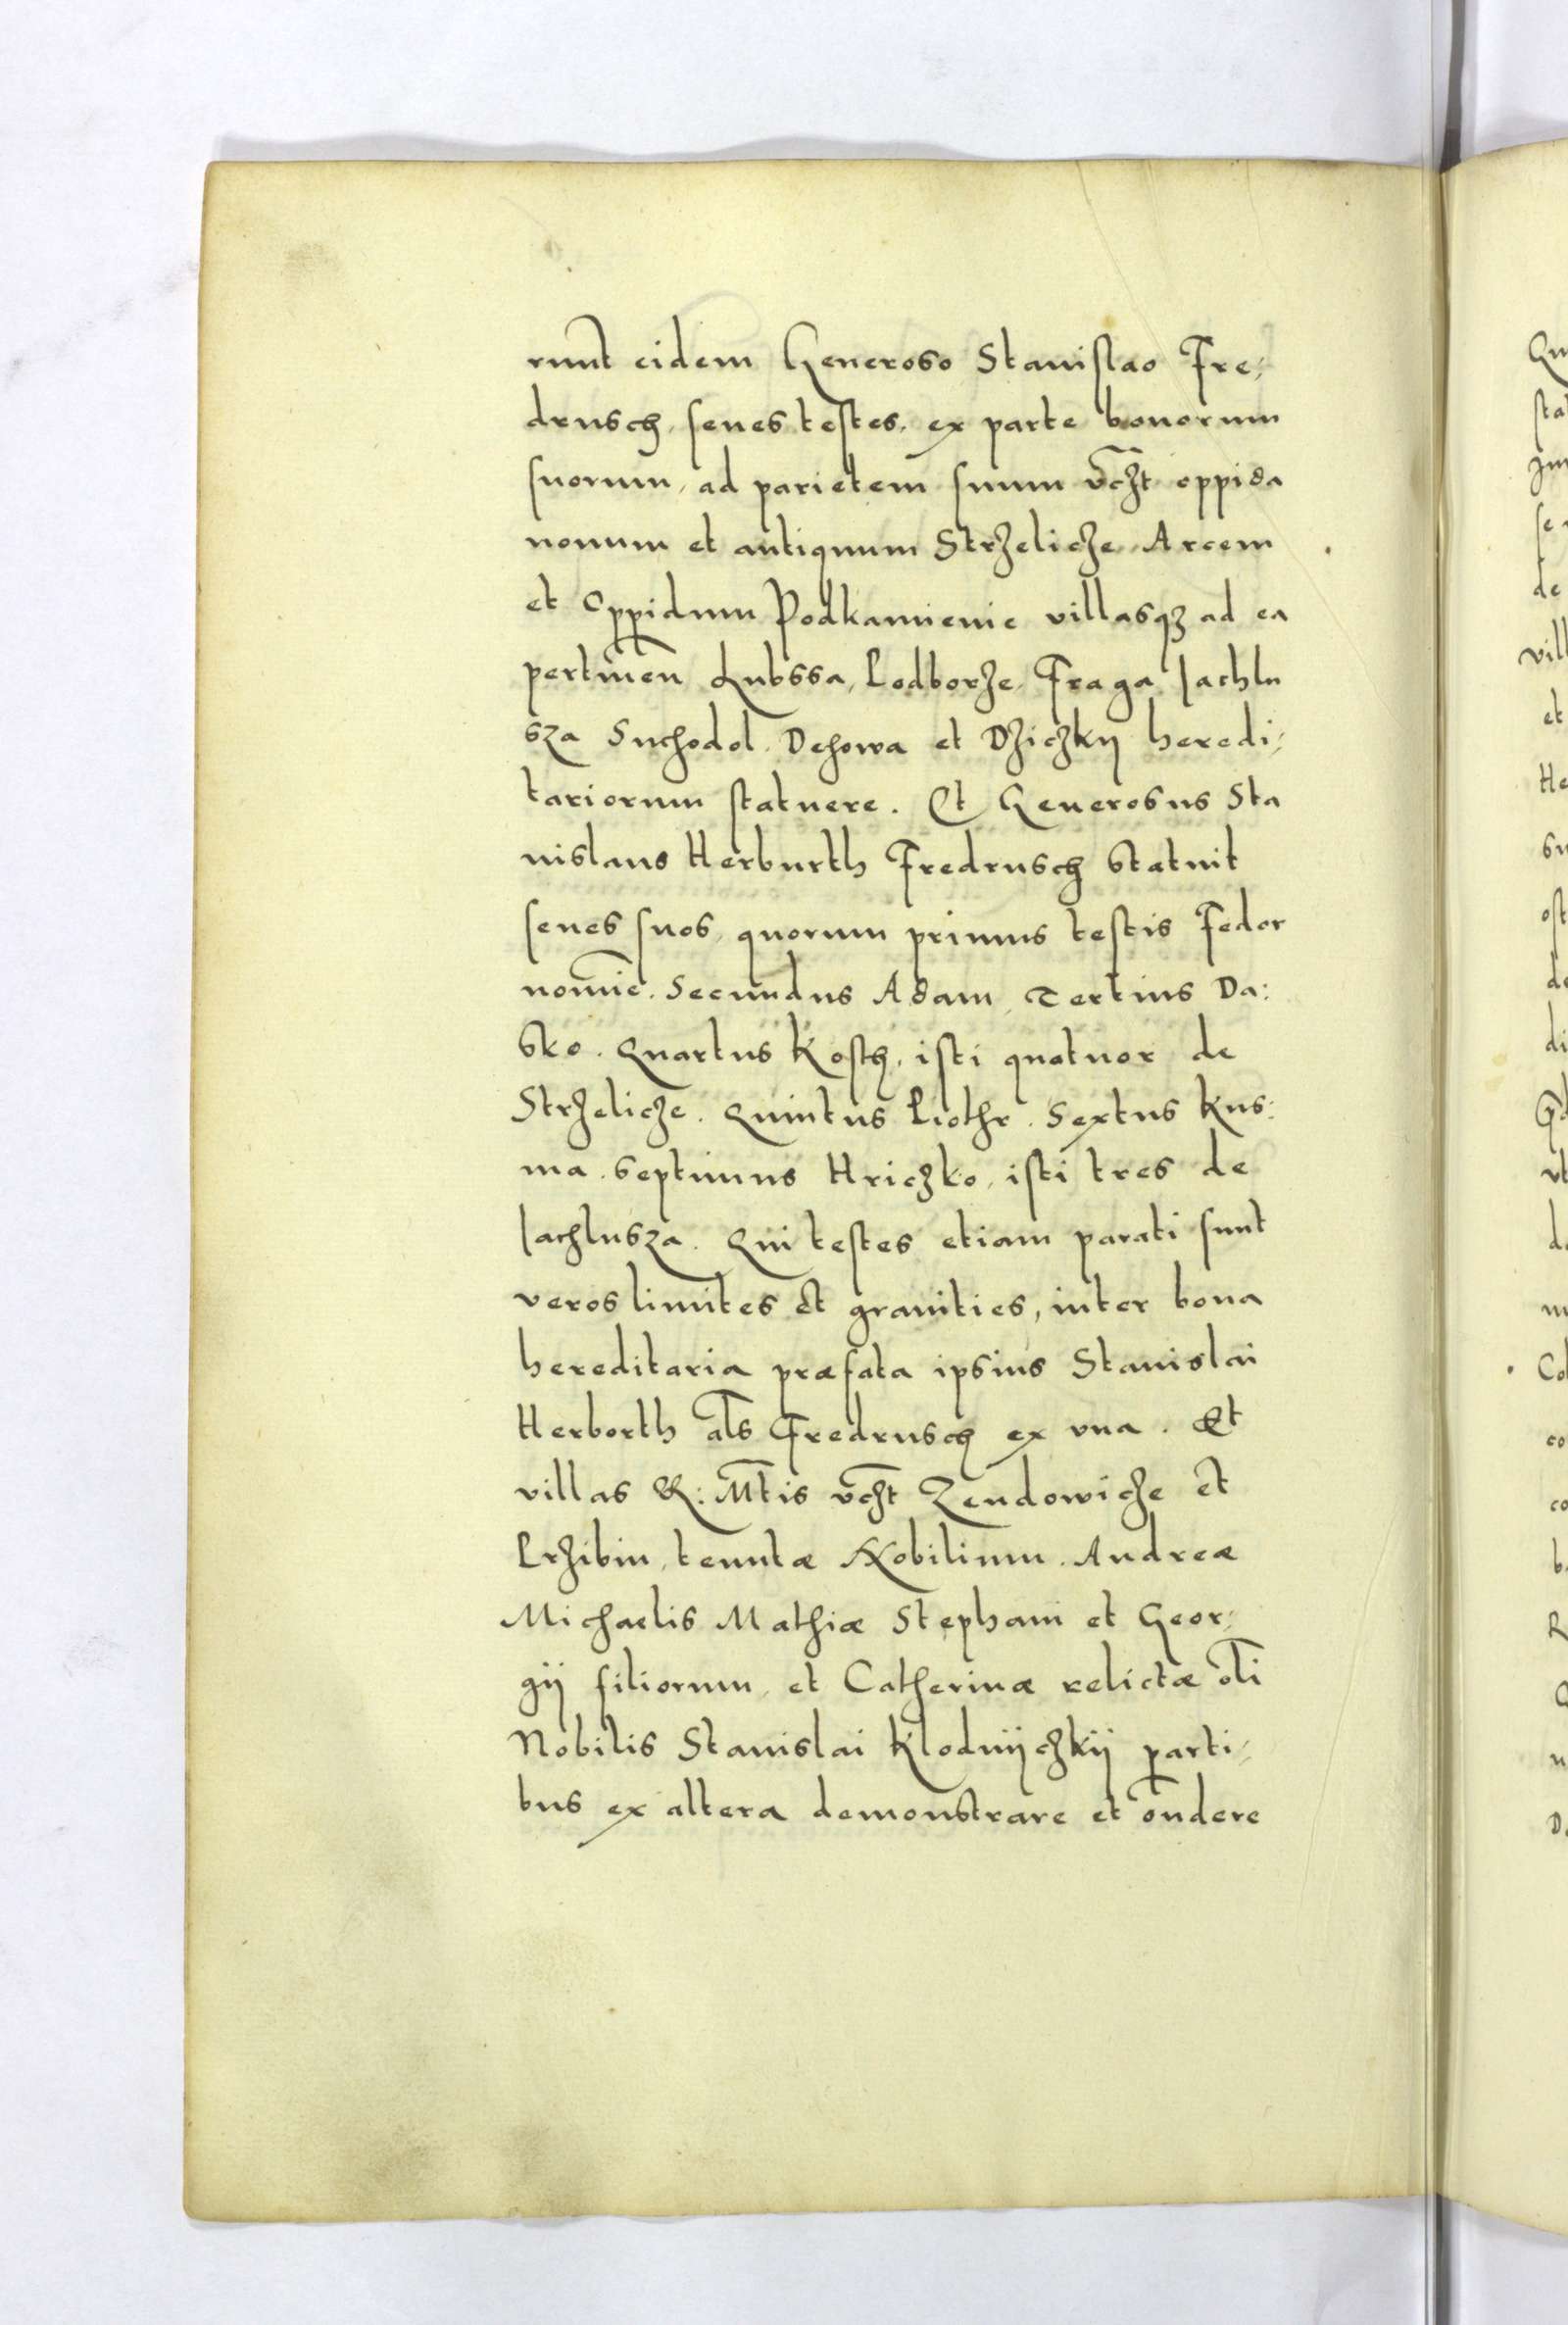 runt eidem Generoso Stanislao Fre⸗
drusch, senes testes, ex parte bonorum
suorum, ad parietem suum vcꝫt oppida
nouum et antiquum Strzelicze, Arcem
et Oppidum Podkamienie villasqꝫ ad ea
pertineñ Lubssa, Podborze, Fraga Jachlu
sza Suchodol, Dehowa et Dziczky heredi⸗
tariorum statuere. Et Generosus Sta
nislaus Herburth Fredrusch statuit
senes suos, quorum primus testis Fedor
nomīe. Secundus Adam, Tertius Da:
sko. Quartus Kosth, isti quatuor de
Strzelicze. Quintus Piothr. Sextus Kus:
ma. Septimus Hriczko, isti tres de
Jachlusza. Qui testes etiam parati sunt
veros limites et granities, inter bona
hereditaria præfata ipsius Stanislai
Herborth al̃s Fredrusch ex vna. Et
villas R: Mt̃is vcꝫt Zendowicze et
Przibin, tenutæ Nobilium. Andreæ
Michaelis Mathiæ Stephani et Geor⸗
gij filiorum, et Catherinæ relictæ ol̃i
Nobilis Stanislai Klodnyczkij parti⸗
bus ex altera demonstrare et on̄dere